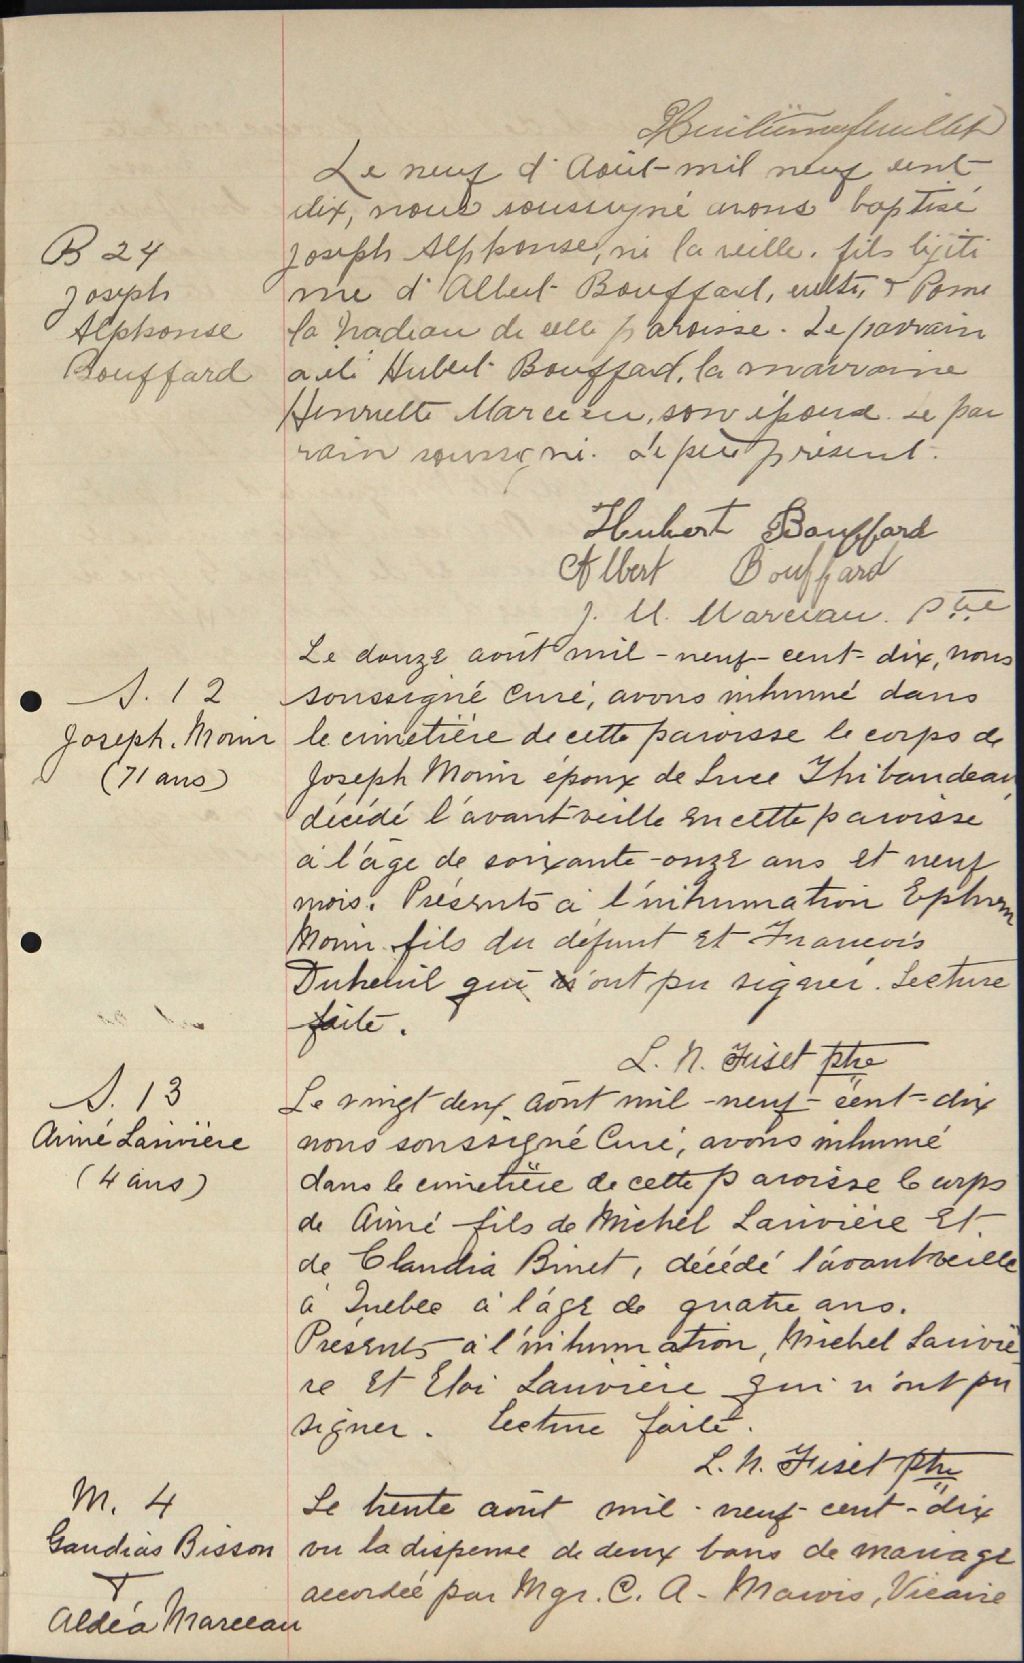 Huitième feuillet
Le neuf d'Août mil neuf cent
dix, nous soussigné avons baptisé
B 24
Joseph
Alphonse
Bouffard
Joseph Alphonse, né la veille, fils légiti
me d'Albert Bouffard, cultr, & Pome
la Nadeau de cette paroisse. Le parrain
a été Hubert Bouffard, la marraine
Henriette Marceau, son épouse. Le par
rain soussigné. Le père présent.
Hubert Bouffard
Albert Bouffard
J. U. Marceau. Ptre
S. 12
Joseph. Morin
(71 ans)
Le douze août mil-neuf-cent-dix, nous
soussigné Curé, avons inhumé dans
le cimetière de cette paroisse le corps de
Joseph Morin époux de Luce Thibaudeau,
décédé l'avant veille en cette paroisse
à l'âge de soixante-onze ans et neuf
mois. Présents à l'inhumation Ephrem
Morin fils du défunt et François
Dubeuil qui n'ont pu signer. Lecture
faite.
L. N. Fiset ptre
S. 13
Aimé Larivière
(4 ans)
Le vingt deux août mil-neuf-cent-dix
nous soussigné Curé, avons inhumé
dans le cimetière de cette paroisse le corps
de Aimé fils de Michel Larivière et
de Claudia Binet, décédé l'avant veille
à Québec à l'âge de quatre ans.
Présents à l'inhumation, Michel Lariviè
re et Eloi Larivière qui n'ont pu
signer. Lecture faite.
L. N. Fiset ptre
M. 4
Gaudias Bisson
&
Aldéa Marceau
Le trente août mil-neuf-cent-dix
vu la dispense de deux bans de mariage
accordée par Mgr. C. A. Marois, Vicaire